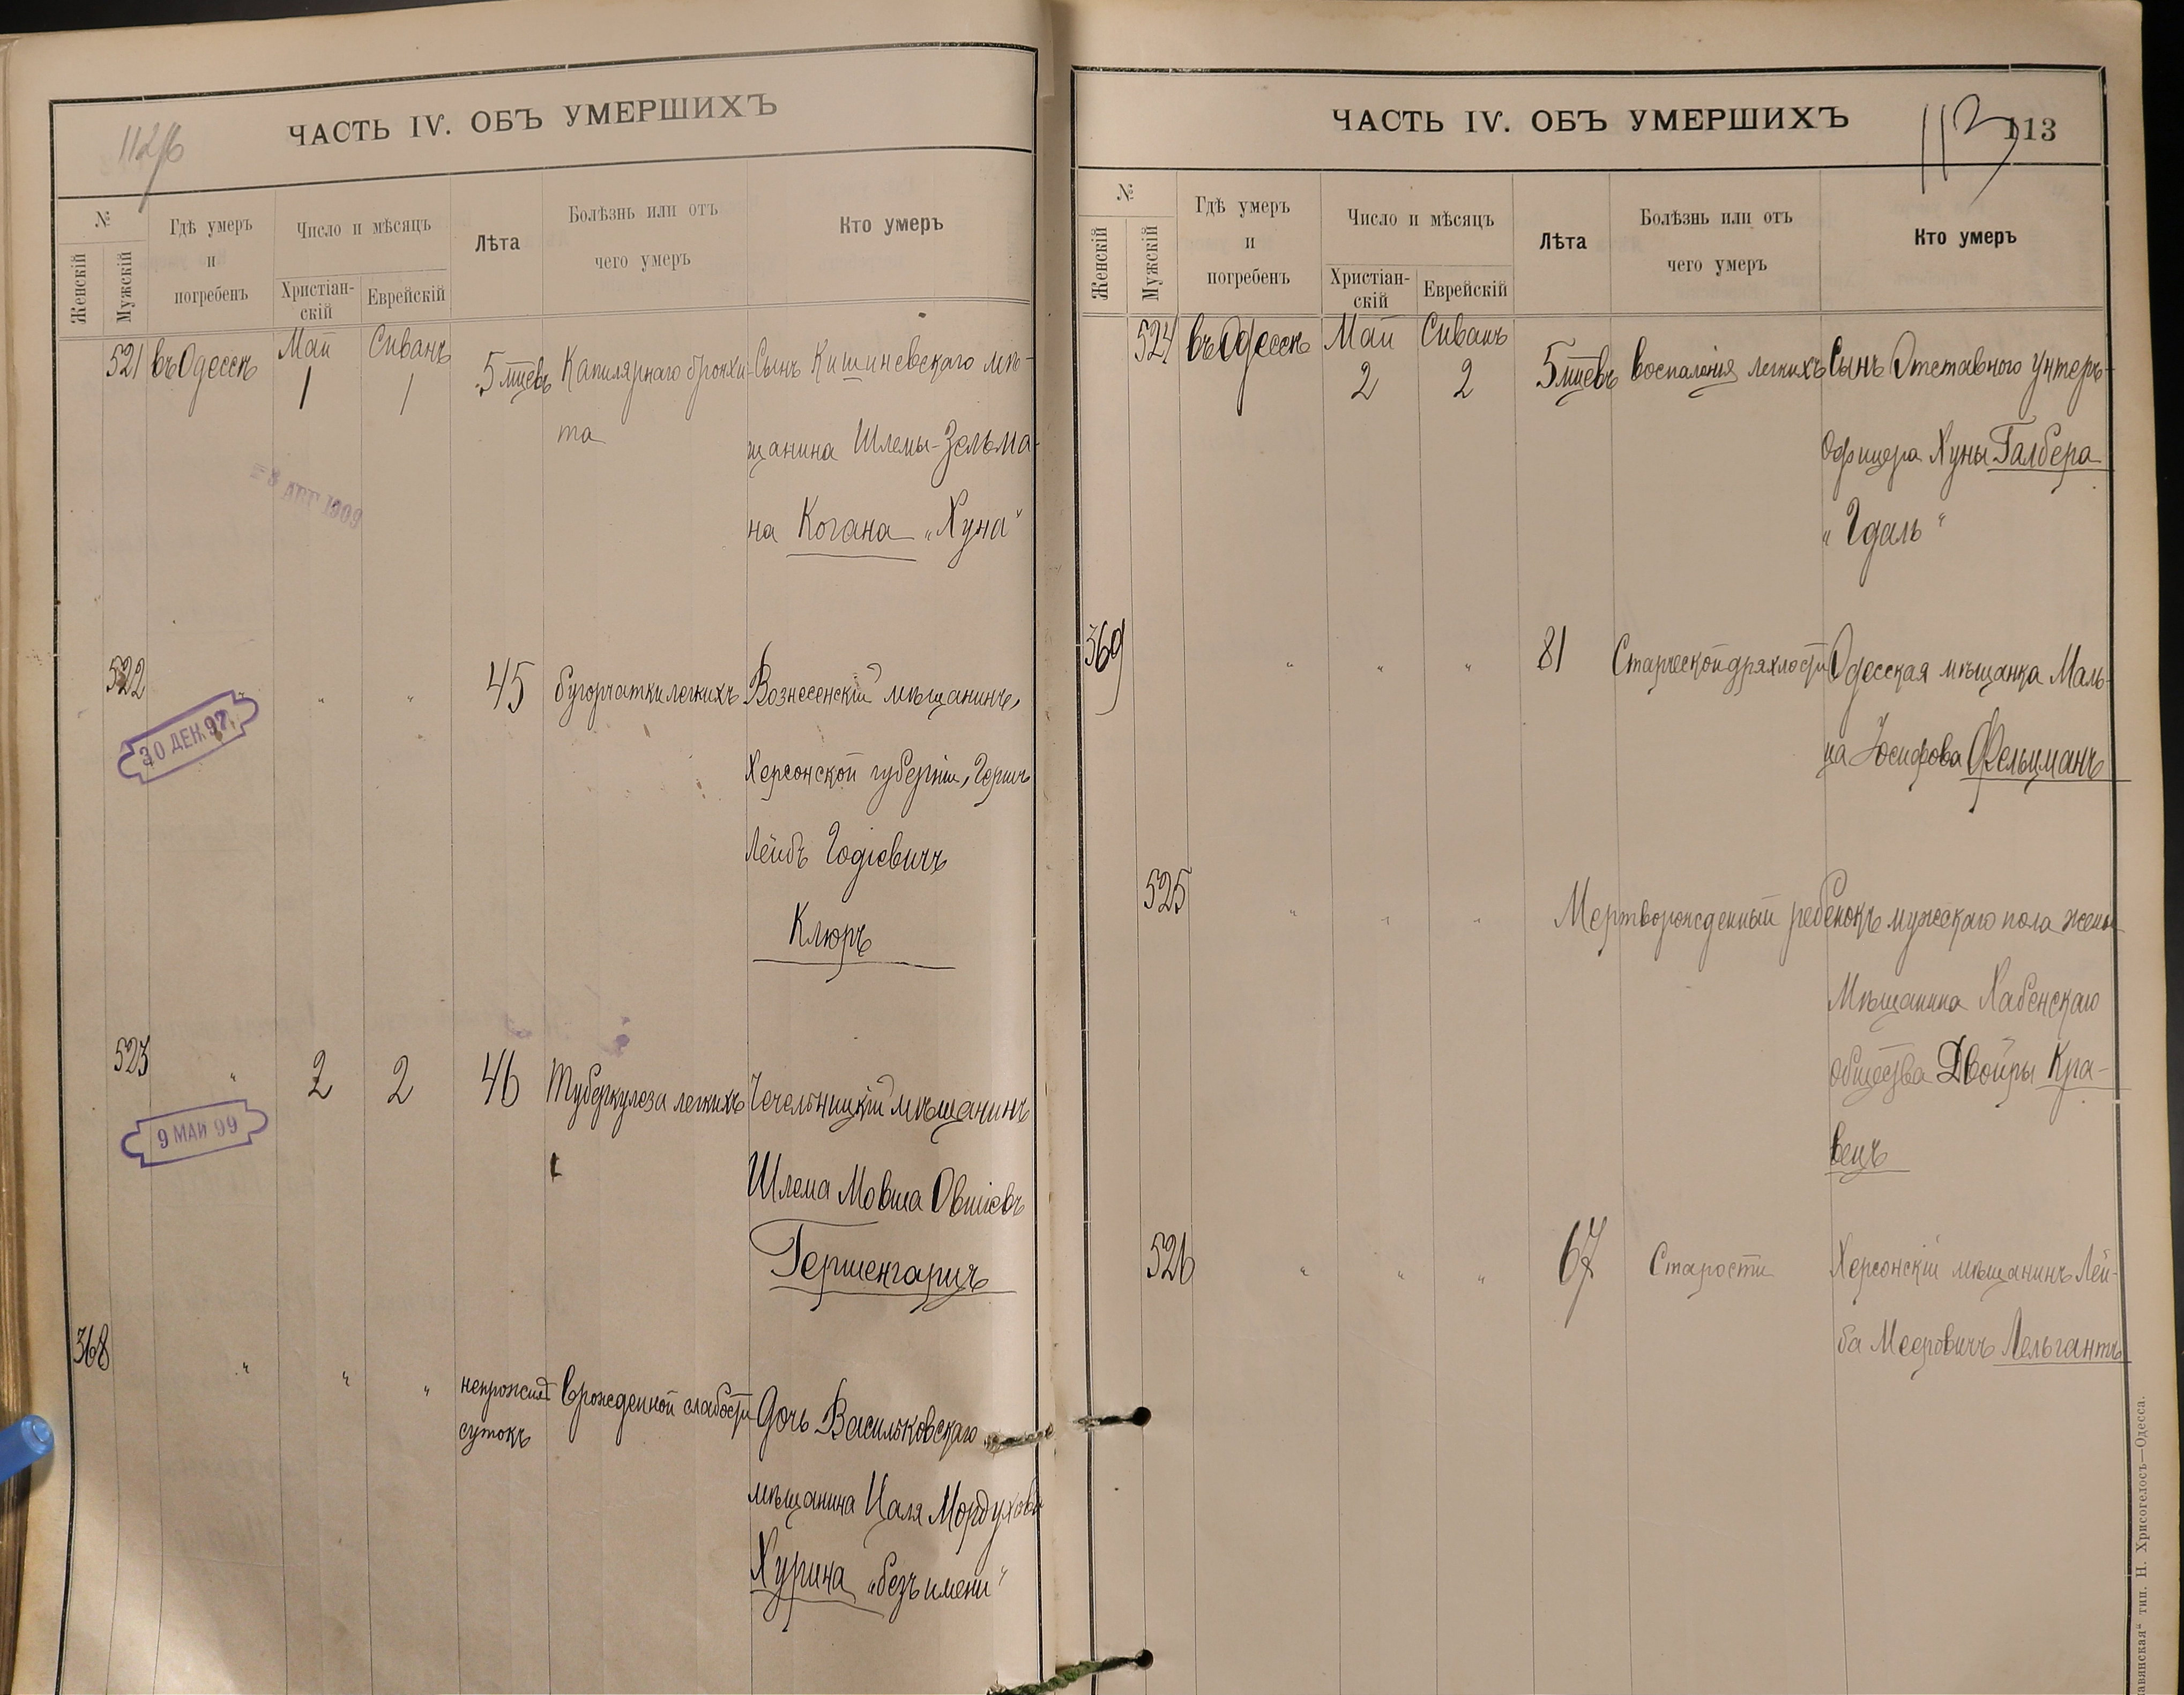 112/б
ЧАСТЬ IV. ОБЪ УМЕРШИХЪ
№
Женскій
Мужскій
Гдѣ умеръ
и
погребенъ
Число и мѣсяцъ
Христіан-
скій
Еврейскій
Лѣта
Болѣзнь или отъ
чего умеръ
Кто умеръ
521 въ Одессѣ Май Сиванъ
1 1 5 мцевъ Капилярнаго бронхи- Сынъ Кишиневскаго мѣ-
та
щанина Шлемы-Зельма-
на Когана „Хуна“
= 8 АВГ 1909
522 " " 45 бугорчатки легкихъ Вознесенскій мѣщанинъ,
30 ДЕК. 97.
Херсонской губерніи, Герш
Лейбъ Годіевичъ
Клюръ
523 " 2 2 46 Туберкулеза легкихъ Чечельницкій мѣщанинъ
9 МАЙ 99
Шлема Мовша Овшіевъ
Гершенгарцъ
368 " " " непрожил врожденной слабости Дочь Васильковскаго
сутокъ
мѣщанина Цаля Мордухова
Хурина „безъ имени“
ЧАСТЬ IV. ОБЪ УМЕРШИХЪ
113
113
№
Женскій
Мужскій
Гдѣ умеръ
и
погребенъ
Число и мѣсяцъ
Христіан-
скій
Еврейскій
Лѣта
Болѣзнь или отъ
чего умеръ
Кто умеръ
524 въ Одессѣ Май Сиванъ
2 2 5 мцевъ воспаленія легкихъ Сынъ Отставного Унтеръ-
Офицера Хуны Галбера
„Гдаль“
369 " " " 81 Старческой дряхлости Одесская мѣщанка Маль-
ца Іосифова Фельцманъ
525 " " " Мертворожденный ребенокъ мужескаго пола жены
Мѣщанина Хабенскаго
общества Двойры Кра-
вецъ
526 " " " 67 Старости Херсонскій мѣщанинъ Лей-
ба Мееровичъ Лельгантъ
авянская“ тип. Н. Хрисогелосъ—Одесса.